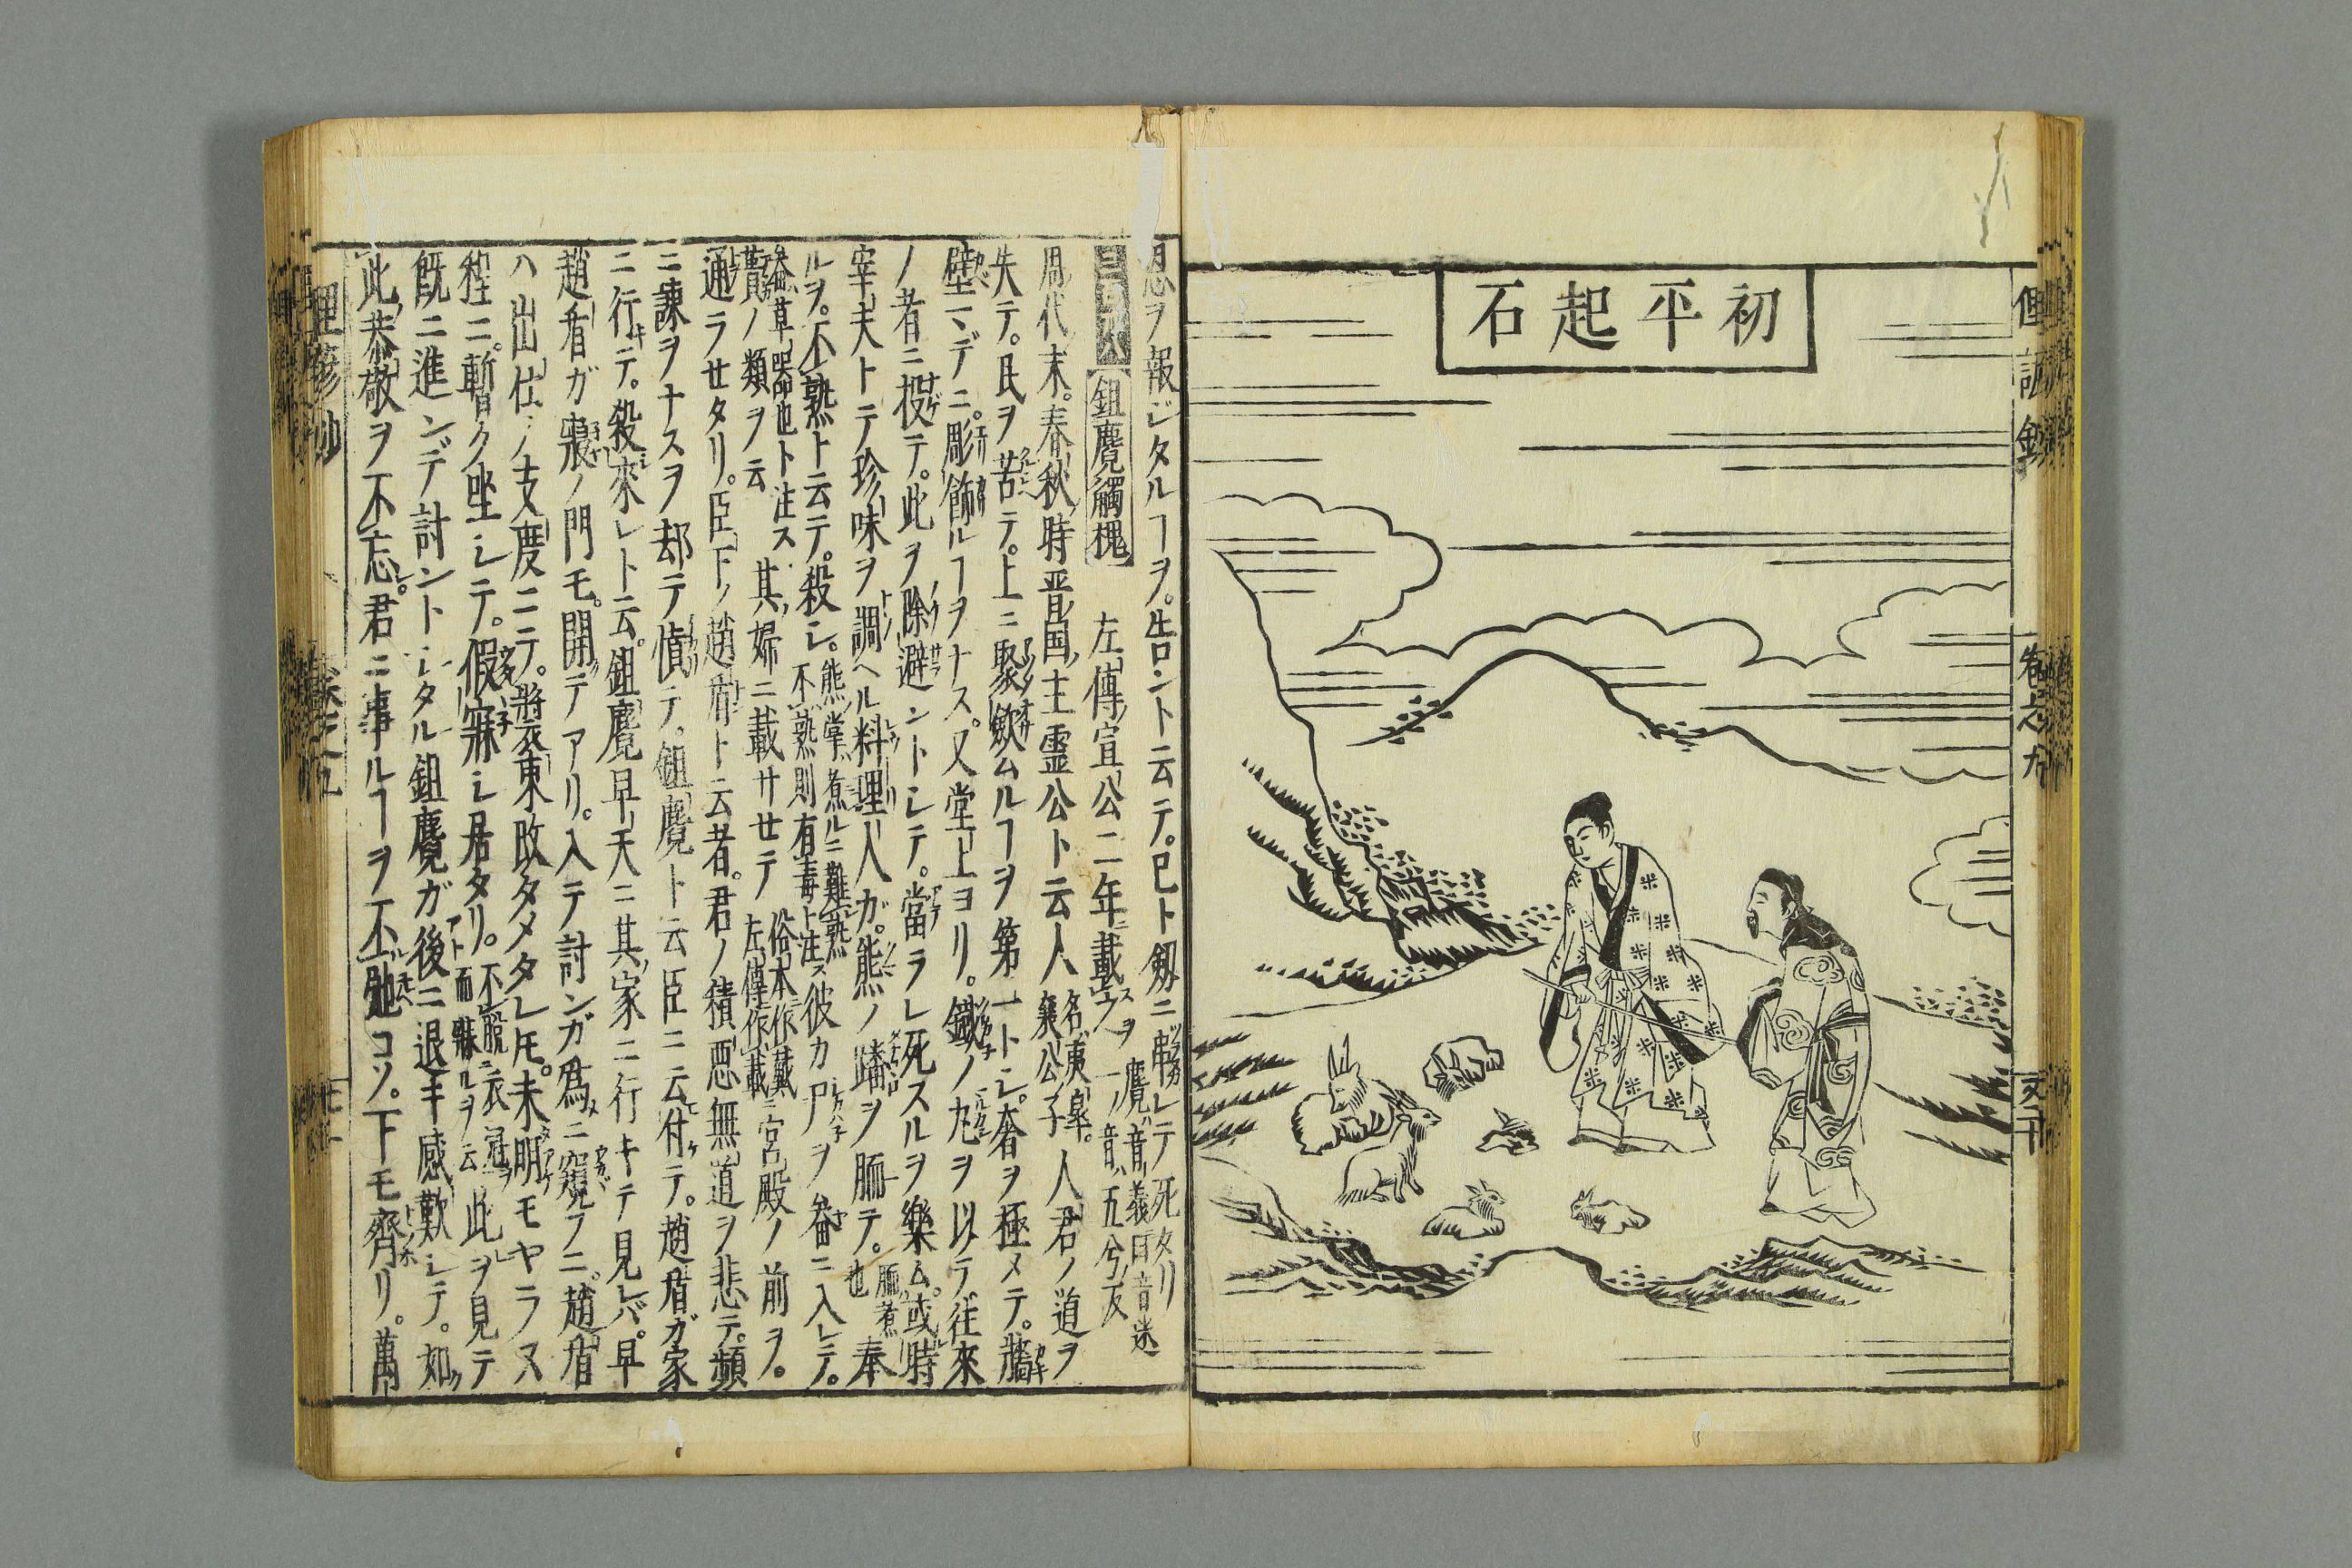 初平起石
俚諺鈔
卷之九
又二十
恩ヲ報ジタルヿヲ。告ント云テ。已ト劔ニ串レテ死タリ
鉏麑觸槐 左傳宣公二年載ス 麑ハ音義曰音迷 一ノ音ハ五兮反
周代ノ末。春秋ノ時晋国ノ主霊公ト云人 名ハ夷皐。襄公ノ子 人君ノ道ヲ
失テ。民ヲ苦テ。上ニ聚歛ムルヿヲ第一トシ。奢ヲ極メテ。牆
壁マデニ。彫餝ルヿヲナス。又堂上ヨリ。鐵ノ丸ヲ以テ往來
ノ者ニ投テ。此ヲ除避ントシテ。當ラレ死スルヲ樂ム。或時
宰夫トテ珍味ヲ調ヘル料理人ガ。熊ノ蹯ヲ胹テ。胹ハ煮也 奉
ルヲ。不熟ト云テ。殺シ。熊掌ハ煮ルニ難熟 不熟則有毒ト注ス 彼カ尸ヲ畚ニ入レテ。
畚ハ草器也ト注ス 簣ノ類ヲ云 其ノ婦ニ載サセテ 俗本作戴 左傳作載 宮殿ノ前ヲ。
通ラせタリ。臣下ノ趙盾ト云者。君ノ積惡無道ヲ悲テ。頻
ニ諫ヲナスヲ却テ憤テ。鉏麑ト云臣ニ云付テ。趙盾ガ家
ニ行キテ。殺來レト云。鉏麑早天ニ其ノ家ニ行キテ見レバ。早
趙盾ガ寢ノ門モ。開テアリ。入テ討ンガ爲ニ窺フニ。趙盾
ハ出仕ノ支度ニテ。裝束改タメタレ𪜈。未明モヤラヌ
程ニ。暫ク坐シテ。假寐シ居タリ。不脱衣冠 而寐ルヲ云 此ヲ見テ
既ニ進ンデ討ントシタル鉏麑ガ後ニ退キ感歎シテ。如
此ノ恭敬ヲ不忘。君ニ事ルヿヲ不弛コソ。下モ齊リ。萬
俚諺鈔
卷之九